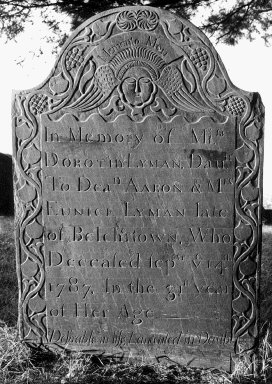 Memento Mori
In Memory of Miſs
DOROTHY LYMAN, Dautr
To Dean. AARON & Mrs
EUNICE LYMAN late
of Belchstown, Who
Deceaſed Sepr. ye 14th
1787. In the 31st year
of Her Age
in life Lamented in Death